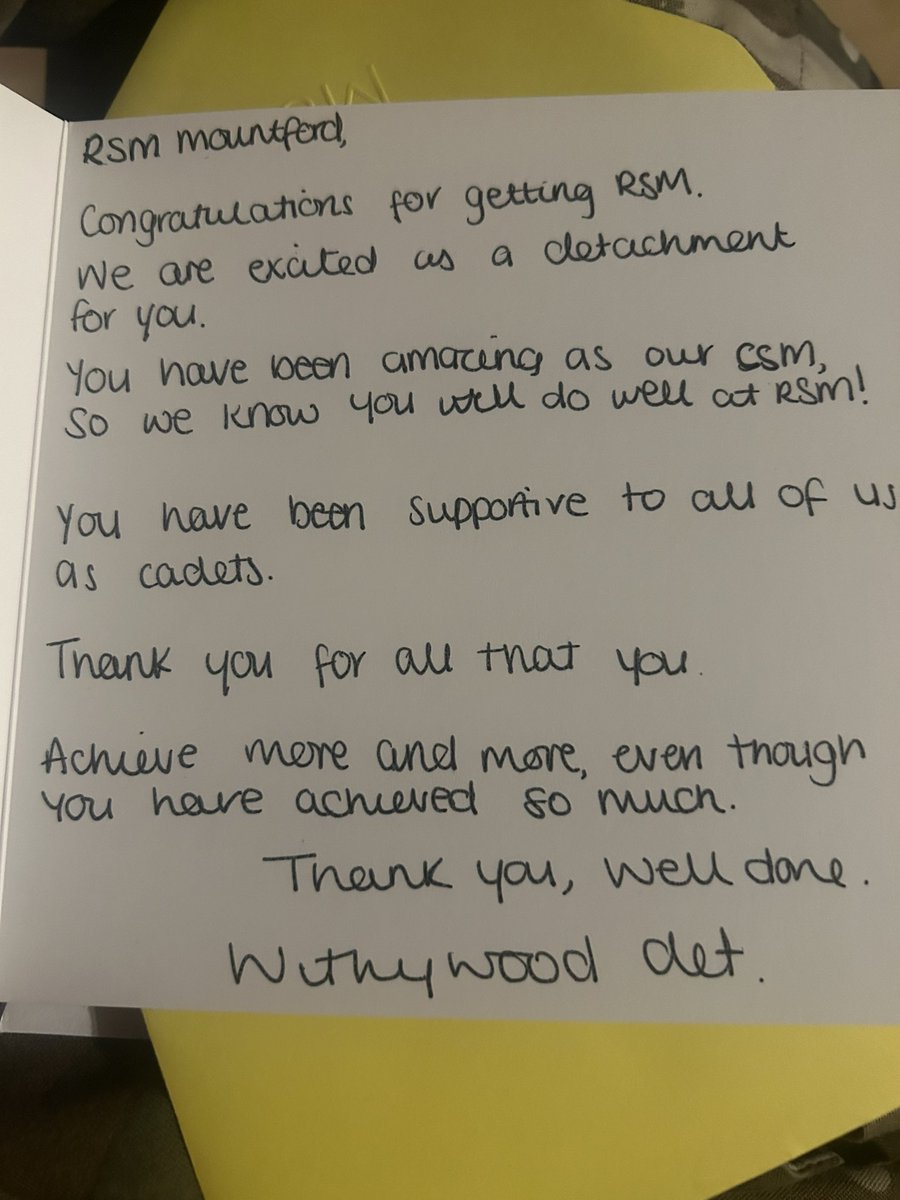 RSM mountford,
Congratulations for getting RSM.
We are excited as a detachment
for you.
You have been amazing as our CSM,
So we know you will do well at RSM!
You have been supportive to all of us
as cadets.
Thank you for all that you.
Achieve more and more, even though
you have achieved so much.
Thank you, well done.
Withywood det.